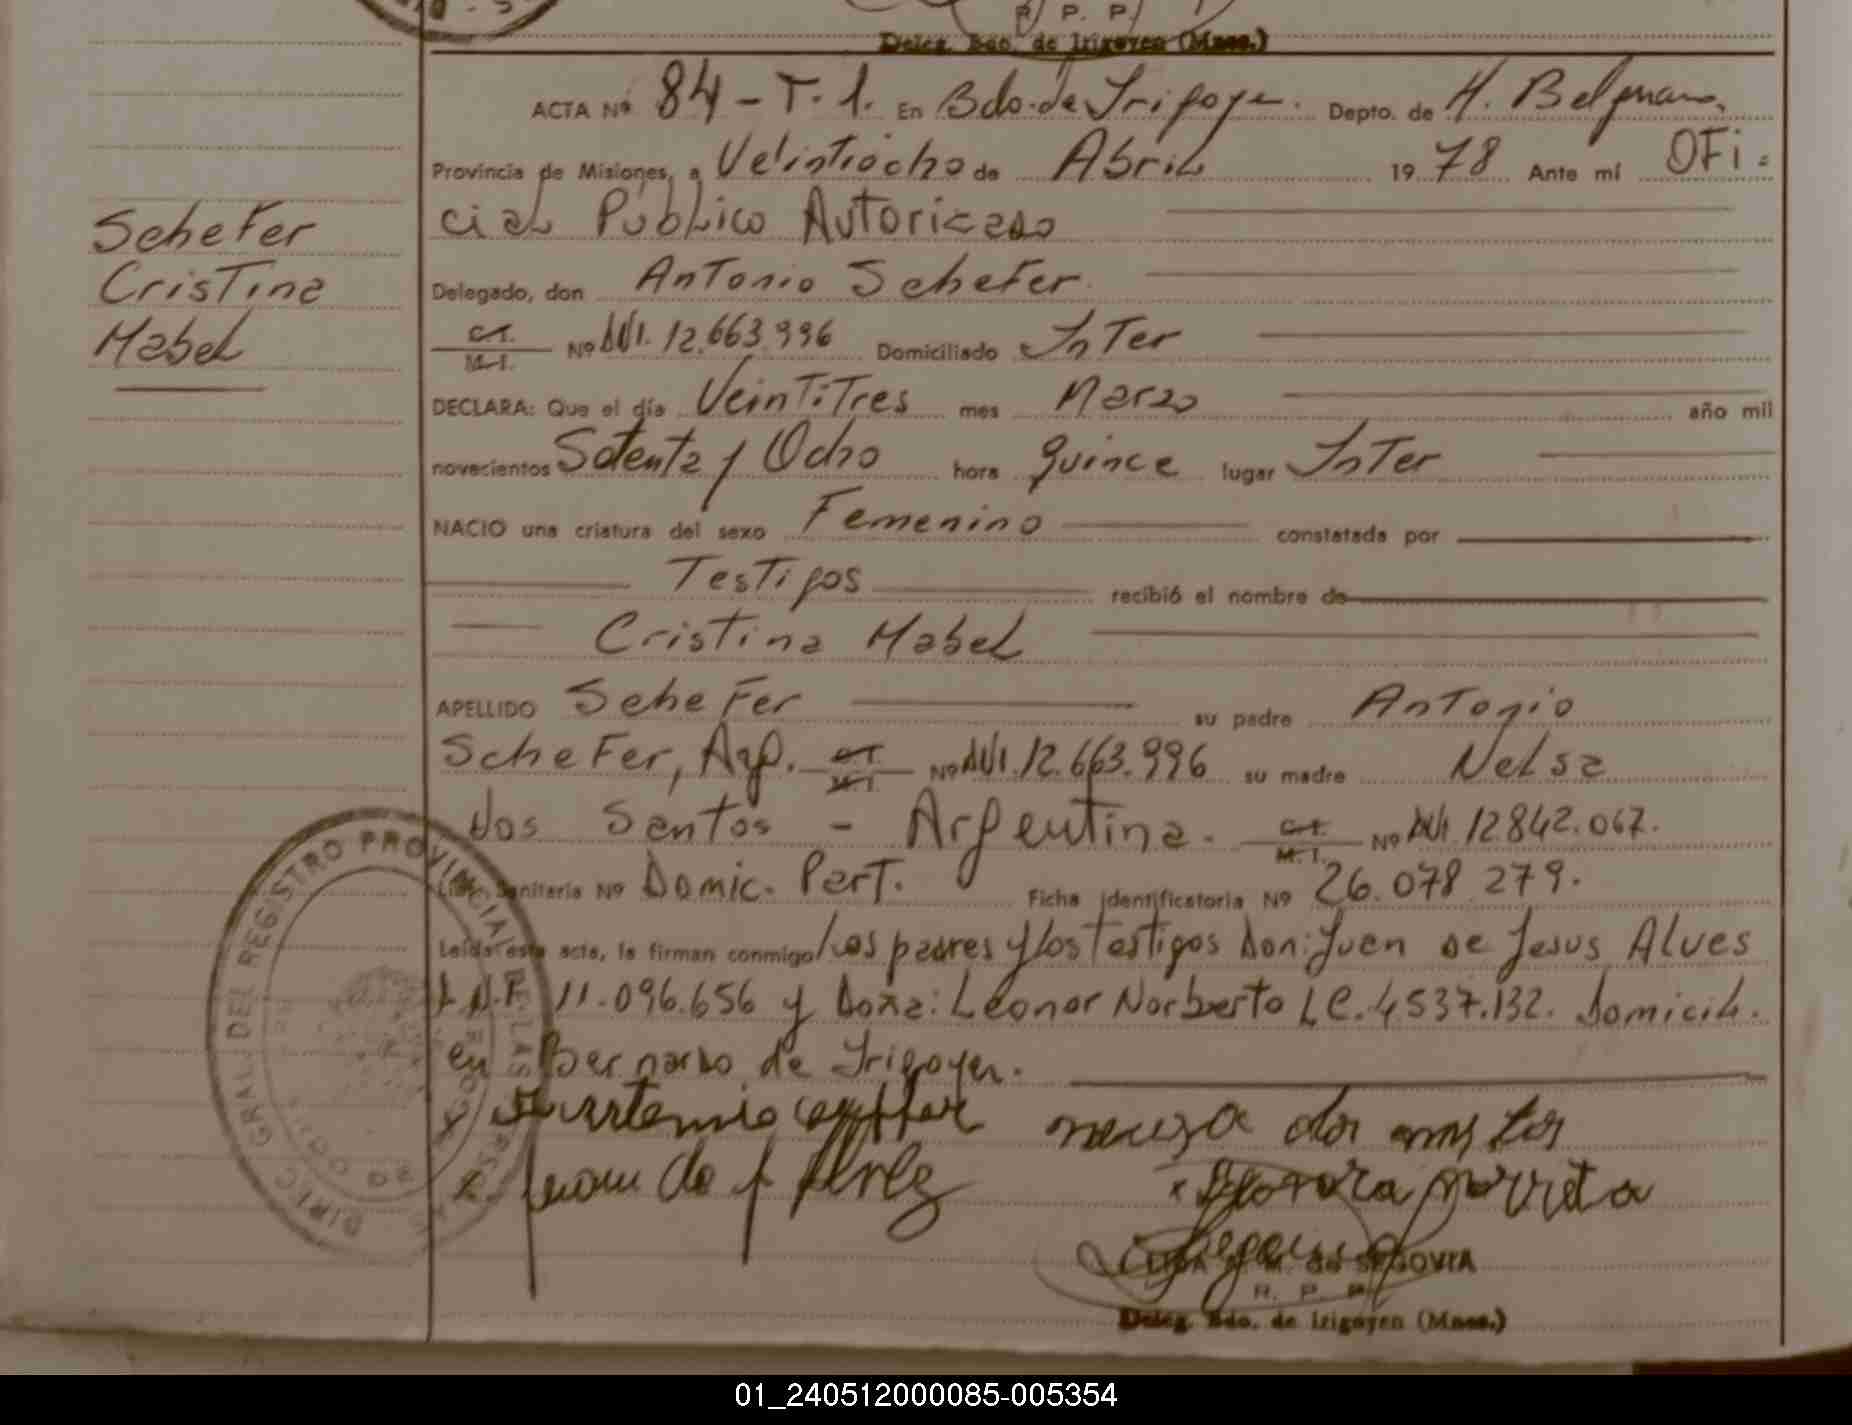 R. P. P.
Deleg. Bdo. de Irigoyen (Mnes.)
ACTA Nº 84 - T. 1. En Bdo. de Irigoyen. Depto. de M. Belgrano.
Provincia de Misiones, a Veintiocho de Abril 1978 Ante mí OFi-
cial Público Autorizado
Schefer
Cristina
Mabel
Delegado, don Antonio Schefer.
C.I.
M.I. Nº DNI. 12.663.996 Domiciliado Inter
DECLARA: Que el día Veintitres mes Marzo año mil
novecientos Setenta y Ocho hora quince lugar Inter
NACIO una criatura del sexo Femenino constatada por
Testigos recibió el nombre de
Cristina Mabel
APELLIDO Schefer su padre Antonio
Schefer, Arg. C.I. M.I. Nº DNI. 12.663.996 su madre Nelsa
dos Santos - Argentina. C.I. M.I. Nº DNI. 12842.067.
Sanitaria Nº Domic. Part. Ficha identificatoria Nº 26.078.279.
Leída esta acta, la firman conmigo/Los padres y los Testigos Don: Juan de Jesus Alves
11.096.656 y Doña: Leonor Norberto LC. 4537.132. Domicil.
en Bernardo de Irigoyen.
neuza dos
x
DIREC. GRAL. DEL REGISTRO PROVINCIAL DE LAS PERSONAS
de SEGOVIA
R. P. P.
Deleg. Bdo. de Irigoyen (Mnes.)
01_240512000085-005354